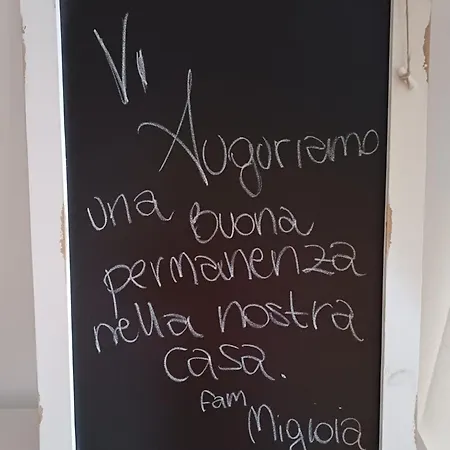 Vi
Auguriamo
una Buona
permanenza
nella nostra
casa.
fam Migloia